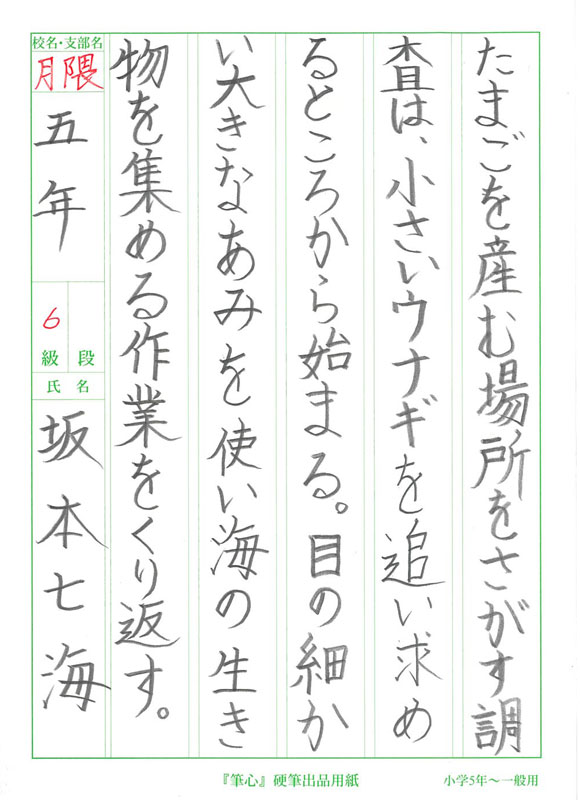 たまごを産む場所をさがす調
査は、小さいウナギを追い求め
るところから始まる。目の細か
い大きなあみを使い海の生き
物を集める作業をくり返す。
校名・支部名
月隈
五年
6
級 段
氏 名
坂本七海
『筆心』硬筆出品用紙
小学5年〜一般用